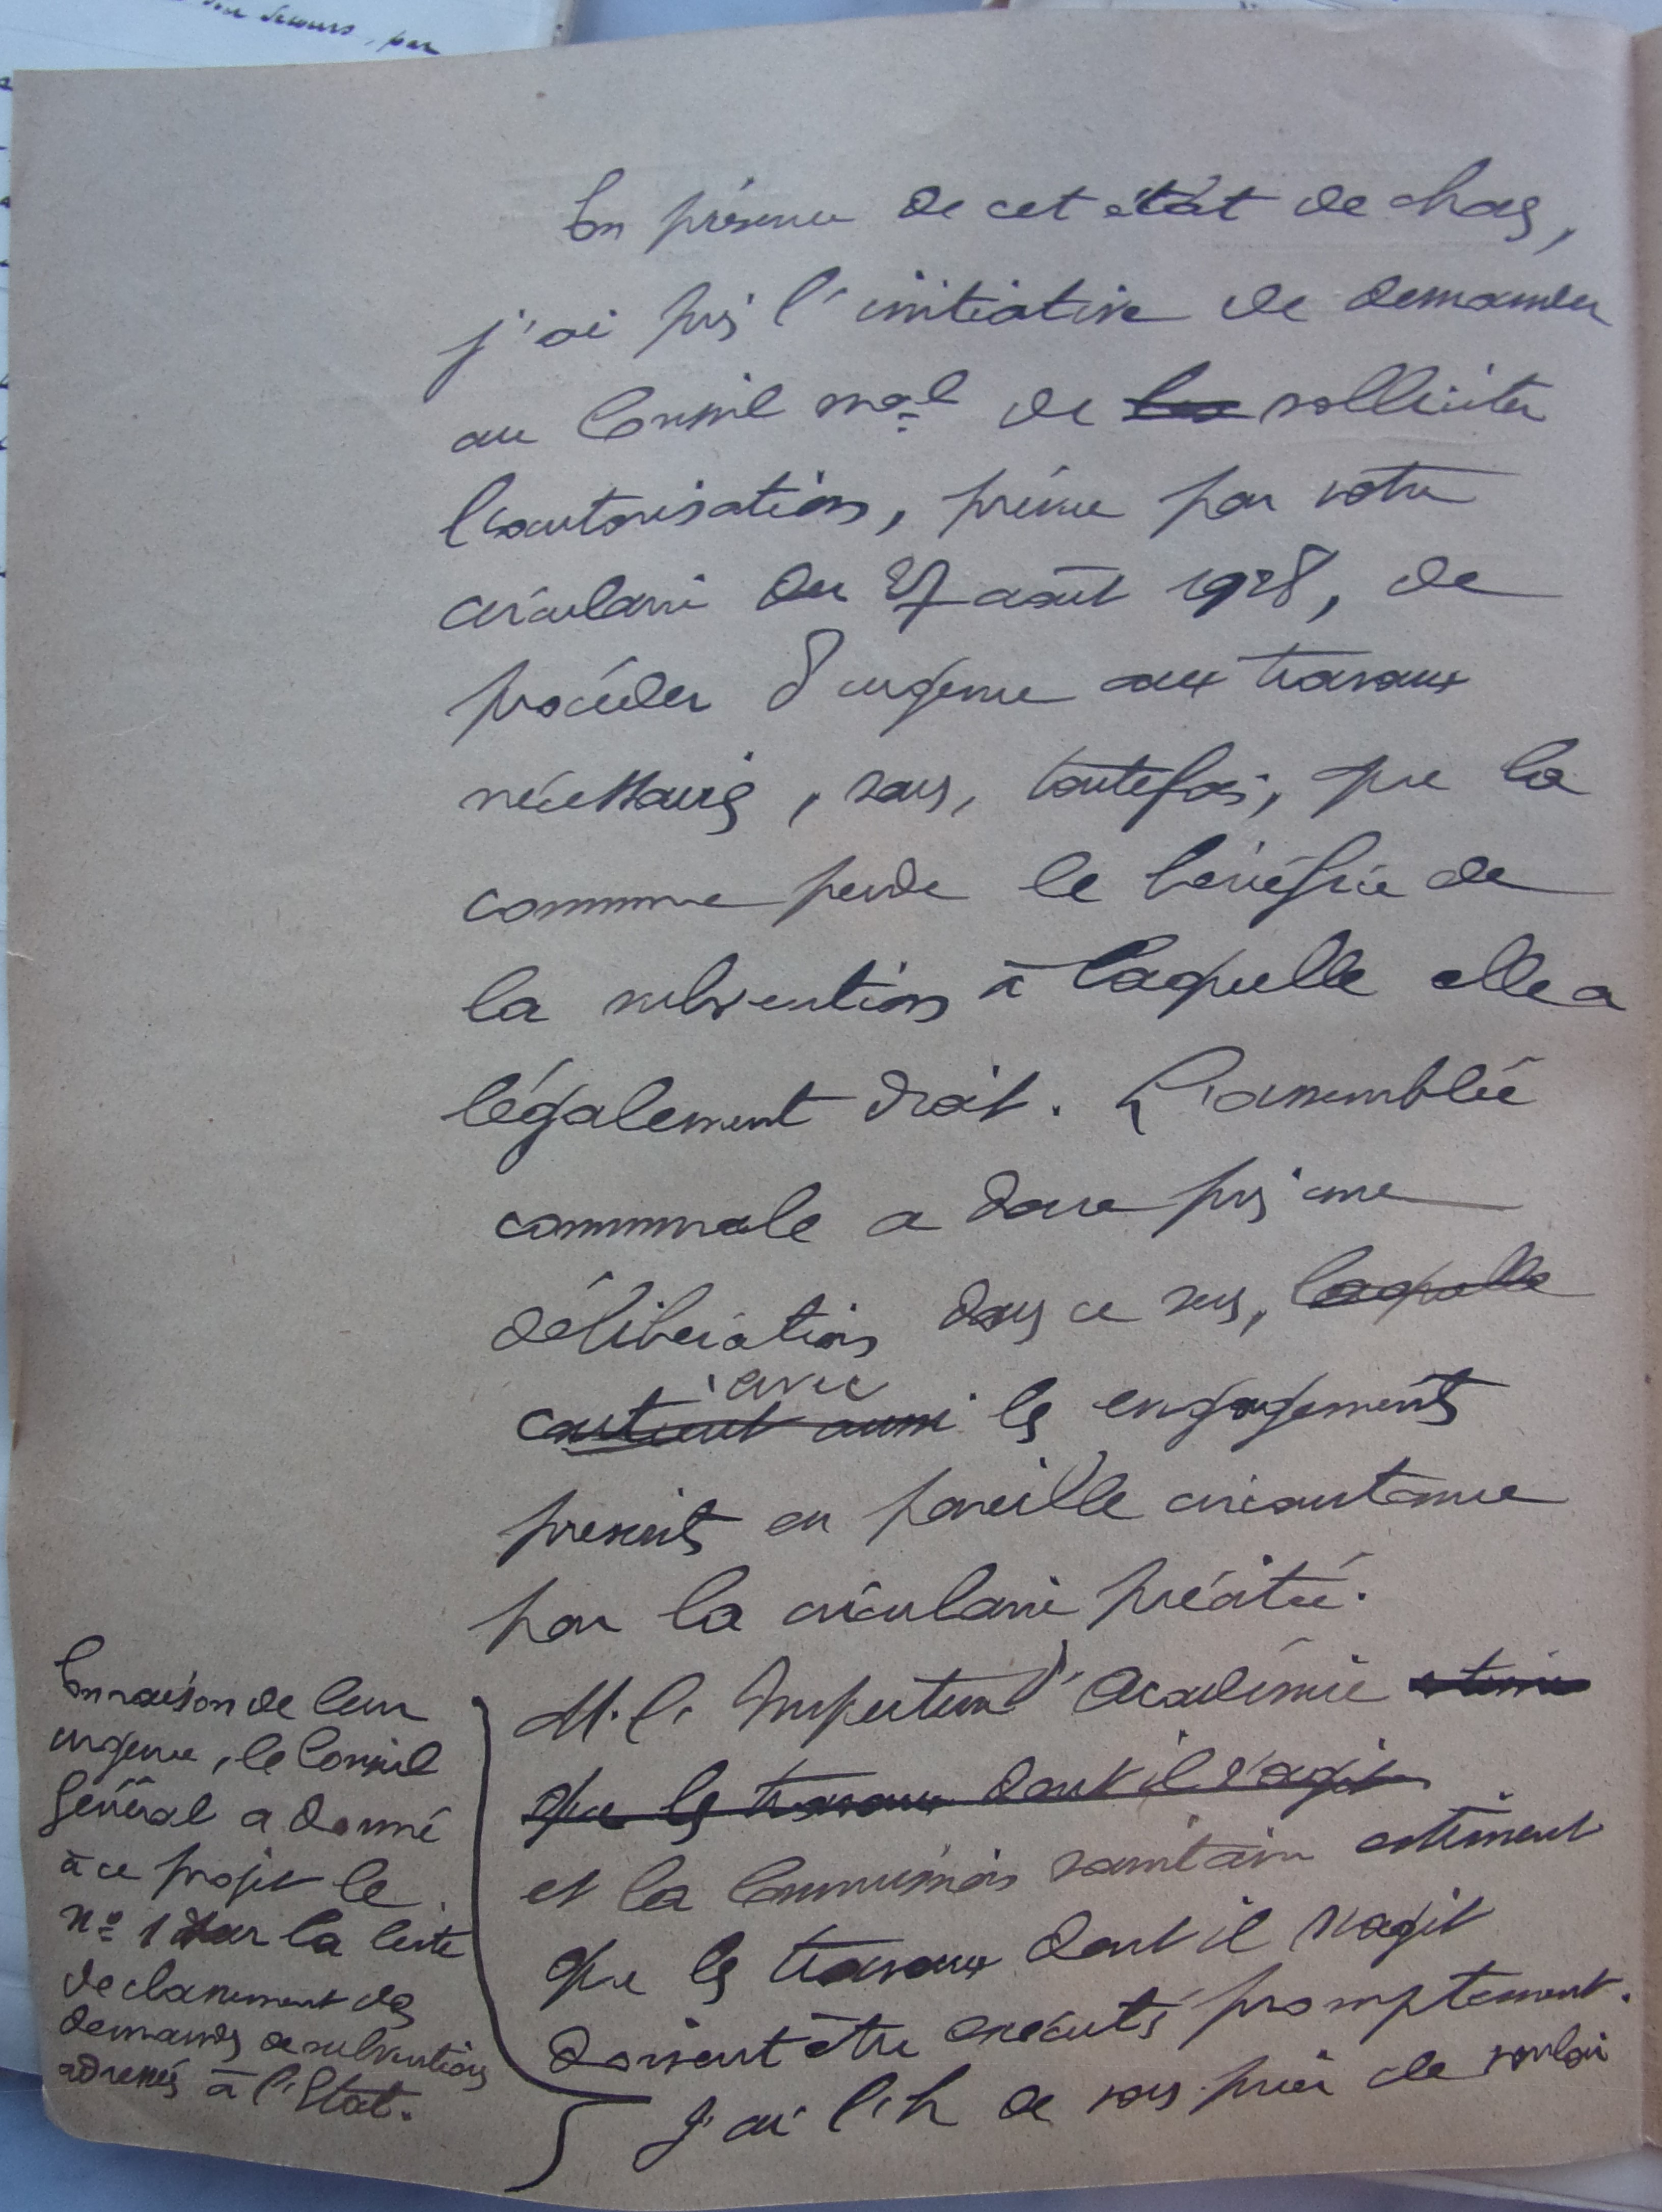 En présence de cet état de choses,
j'ai pris l'initiative de demander
au Conseil mal de solliciter
l'autorisation, prévue par votre
circulaire du 27 août 1928, de
procéder d'urgence aux travaux
nécessaires, sans, toutefois, que la
commune perde le bénéfice de
la subvention à laquelle elle a
légalement droit. L'assemblée
communale a donc pris une
délibération dans ce sens, laquelle
avec
contient aussi les engagements
prescrits en pareille circonstance
par la circulaire précitée.
M. l'Inspecteur d'Académie estime
que les travaux dont il s'agit
et la Commission sanitaire estiment
que les travaux dont il s'agit
doivent être exécutés promptement.
En raison de leur
urgence, le Conseil
Général a donné
à ce projet le
n° 1 sur la liste
de classement des
demandes de subventions
adressées à l'Etat.
J'ai l'h de vous prier de vouloir